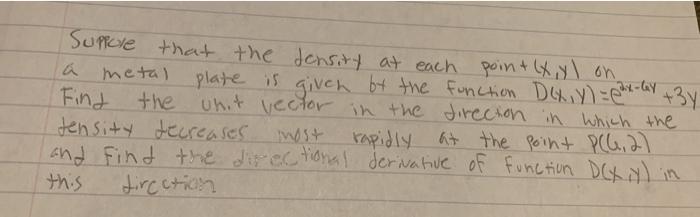 Suppose that the density at each point (x,y) on
a metal plate is given by the function D(x,y)=e^{2x-6y}+3y
Find the unit vector in the direcion in which the
density decreases most rapidly at the point P(6,2)
and find the directional derivative of function D(x,y) in
this direction